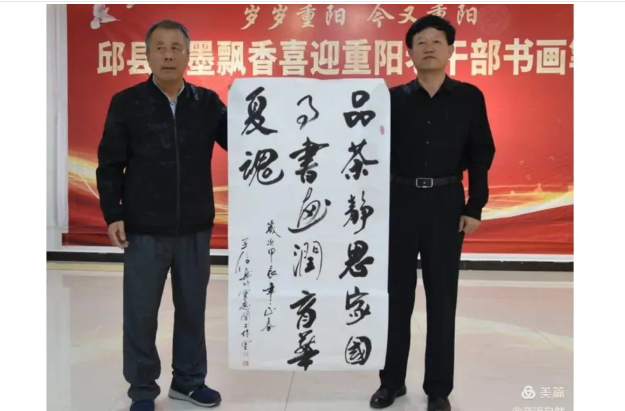 岁岁重阳 今又重阳
邱县 墨飘香喜迎重阳 干部书画
品茶静思家國
事書画潤育華
夏魂
歲次甲辰年
美篇